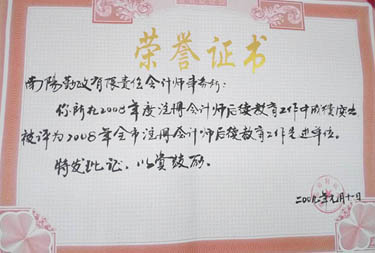 荣誉证书
南阳勤政有限责任会计师事务所:
你所在2008年度注册会计师后续教育工作中成绩突出
被评为2008年全市注册会计师后续教育工作先进单位。
特发此证,以资鼓励。